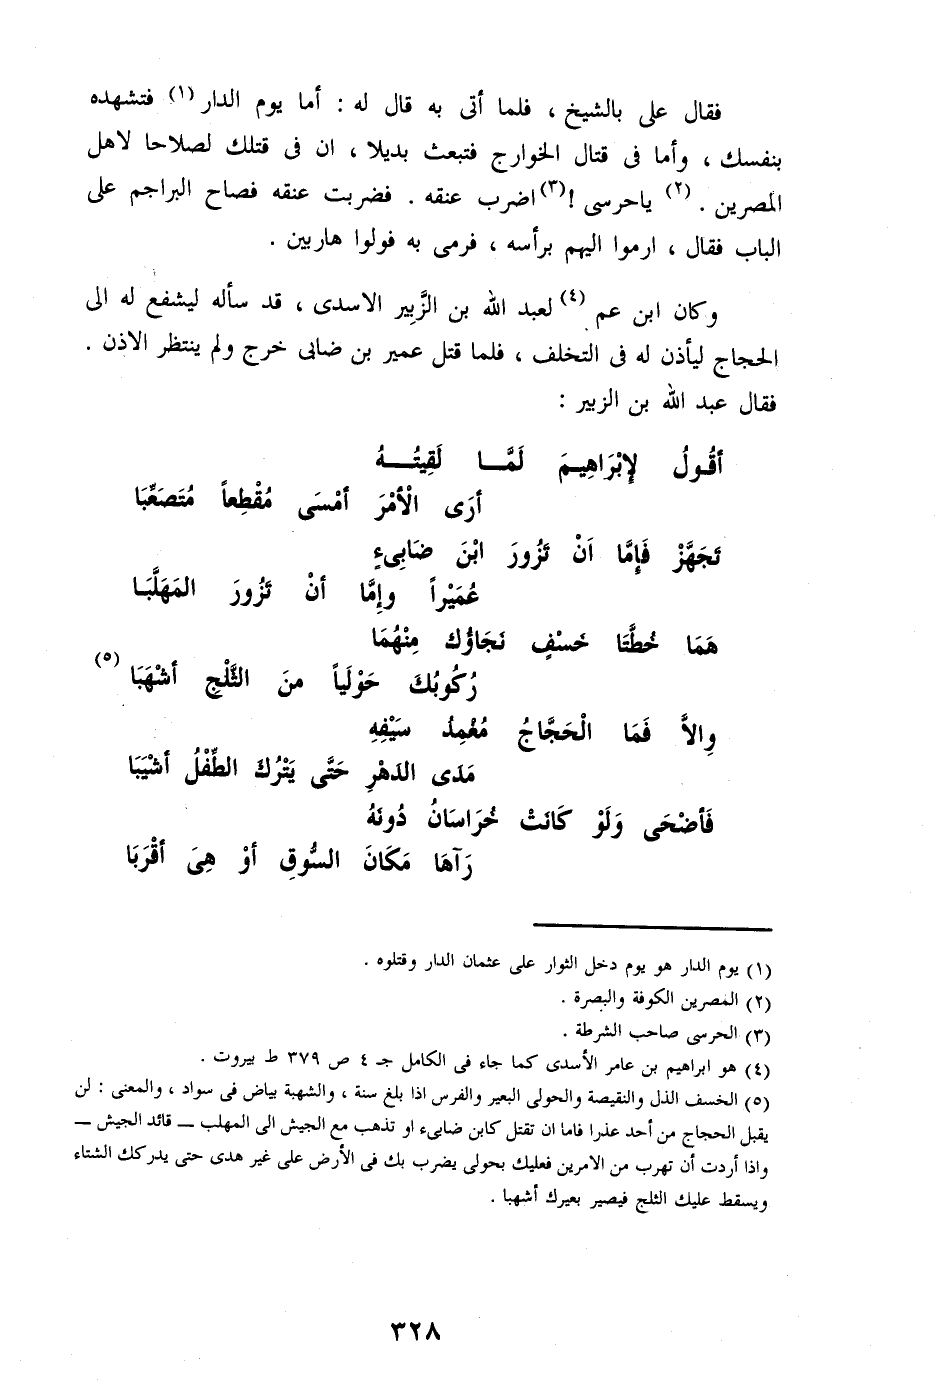 فقال على بالشيخ ، فلما أتى به قال له : أما يوم الدار (١) فتشهده
بنفسك ، وأما فى قتال الخوارج فتبعث بديلا ، ان فى قتلك لصلاحا لاهل
المصرين . (٢) ياحرسى !(٣) اضرب عنقه . فضربت عنقه فصاح البراجم على
الباب فقال ، ارموا اليهم برأسه ، فرمى به فولوا هاربين .
وكان ابن عم (٤) لعبد الله بن الزَّبِير الاسدى ، قد سأله ليشفع له الى
الحجاج ليأذن له فى التخلف ، فلما قتل عمير بن ضابى خرج ولم ينتظر الاذن .
فقال عبد الله بن الزبير :
أقُولُ لِإبْرَاهِيمَ لَمَّـــا لَقِيتُـــهُ
أرَى الْأمْرَ أمْسَى مُقْطِعاً مُتَصَعِّبَا
تَجَهَّزْ فَإمَّا اَنْ تَزُورَ ابْنَ ضَابِىءٍ
عُمَيْراً وإمَّا أنْ تَزُورَ المَهَلَّبَـا
هَمَا خُطَّتَا خَسْفٍ نَجَاؤُكَ مِنْهُمَا
رُكُوبُكَ حَوْلَياً منَ الثَّلْجِ أشْهَبَا (٥)
وِالاَّ فَمَا الْحَجَّاجُ مُغْمِدُ سَيْفِهِ
مَدَى الدَهْرِ حَتَّى يَتْرُكَ الطِّفْلُ أشْيَبَا
فَأضْحَى وَلَوْ كَانَتْ خُرَاسَانُ دُونَهُ
رَآهَا مَكَانَ السُّوقِ أوْ هِىَ أقْرَبَا
(١) يوم الدار هو يوم دخل الثوار على عثمان الدار وقتلوه .
(٢) المصرين الكوفة والبصرة .
(٣) الحرسى صاحب الشرطة .
(٤) هو ابراهيم بن عامر الأسدى كما جاء فى الكامل جـ ٤ ص ٣٧٩ ط بيروت .
(٥) الخسف الذل والنقيصة والحولى البعير والفرس اذا بلغ سنة ، والشهبة بياض فى سواد ، والمعنى : لن
يقبل الحجاج من أحد عذرا فاما ان تقتل كابن ضابىء او تذهب مع الجيش الى المهلب ــ قائد الجيش ــ
واذا أردت أن تهرب من الامرين فعليك بحولى يضرب بك فى الأرض على غير هدى حتى يدركك الشتاء
ويسقط عليك الثلج فيصير بعيرك أشهبا .
٣٢٨